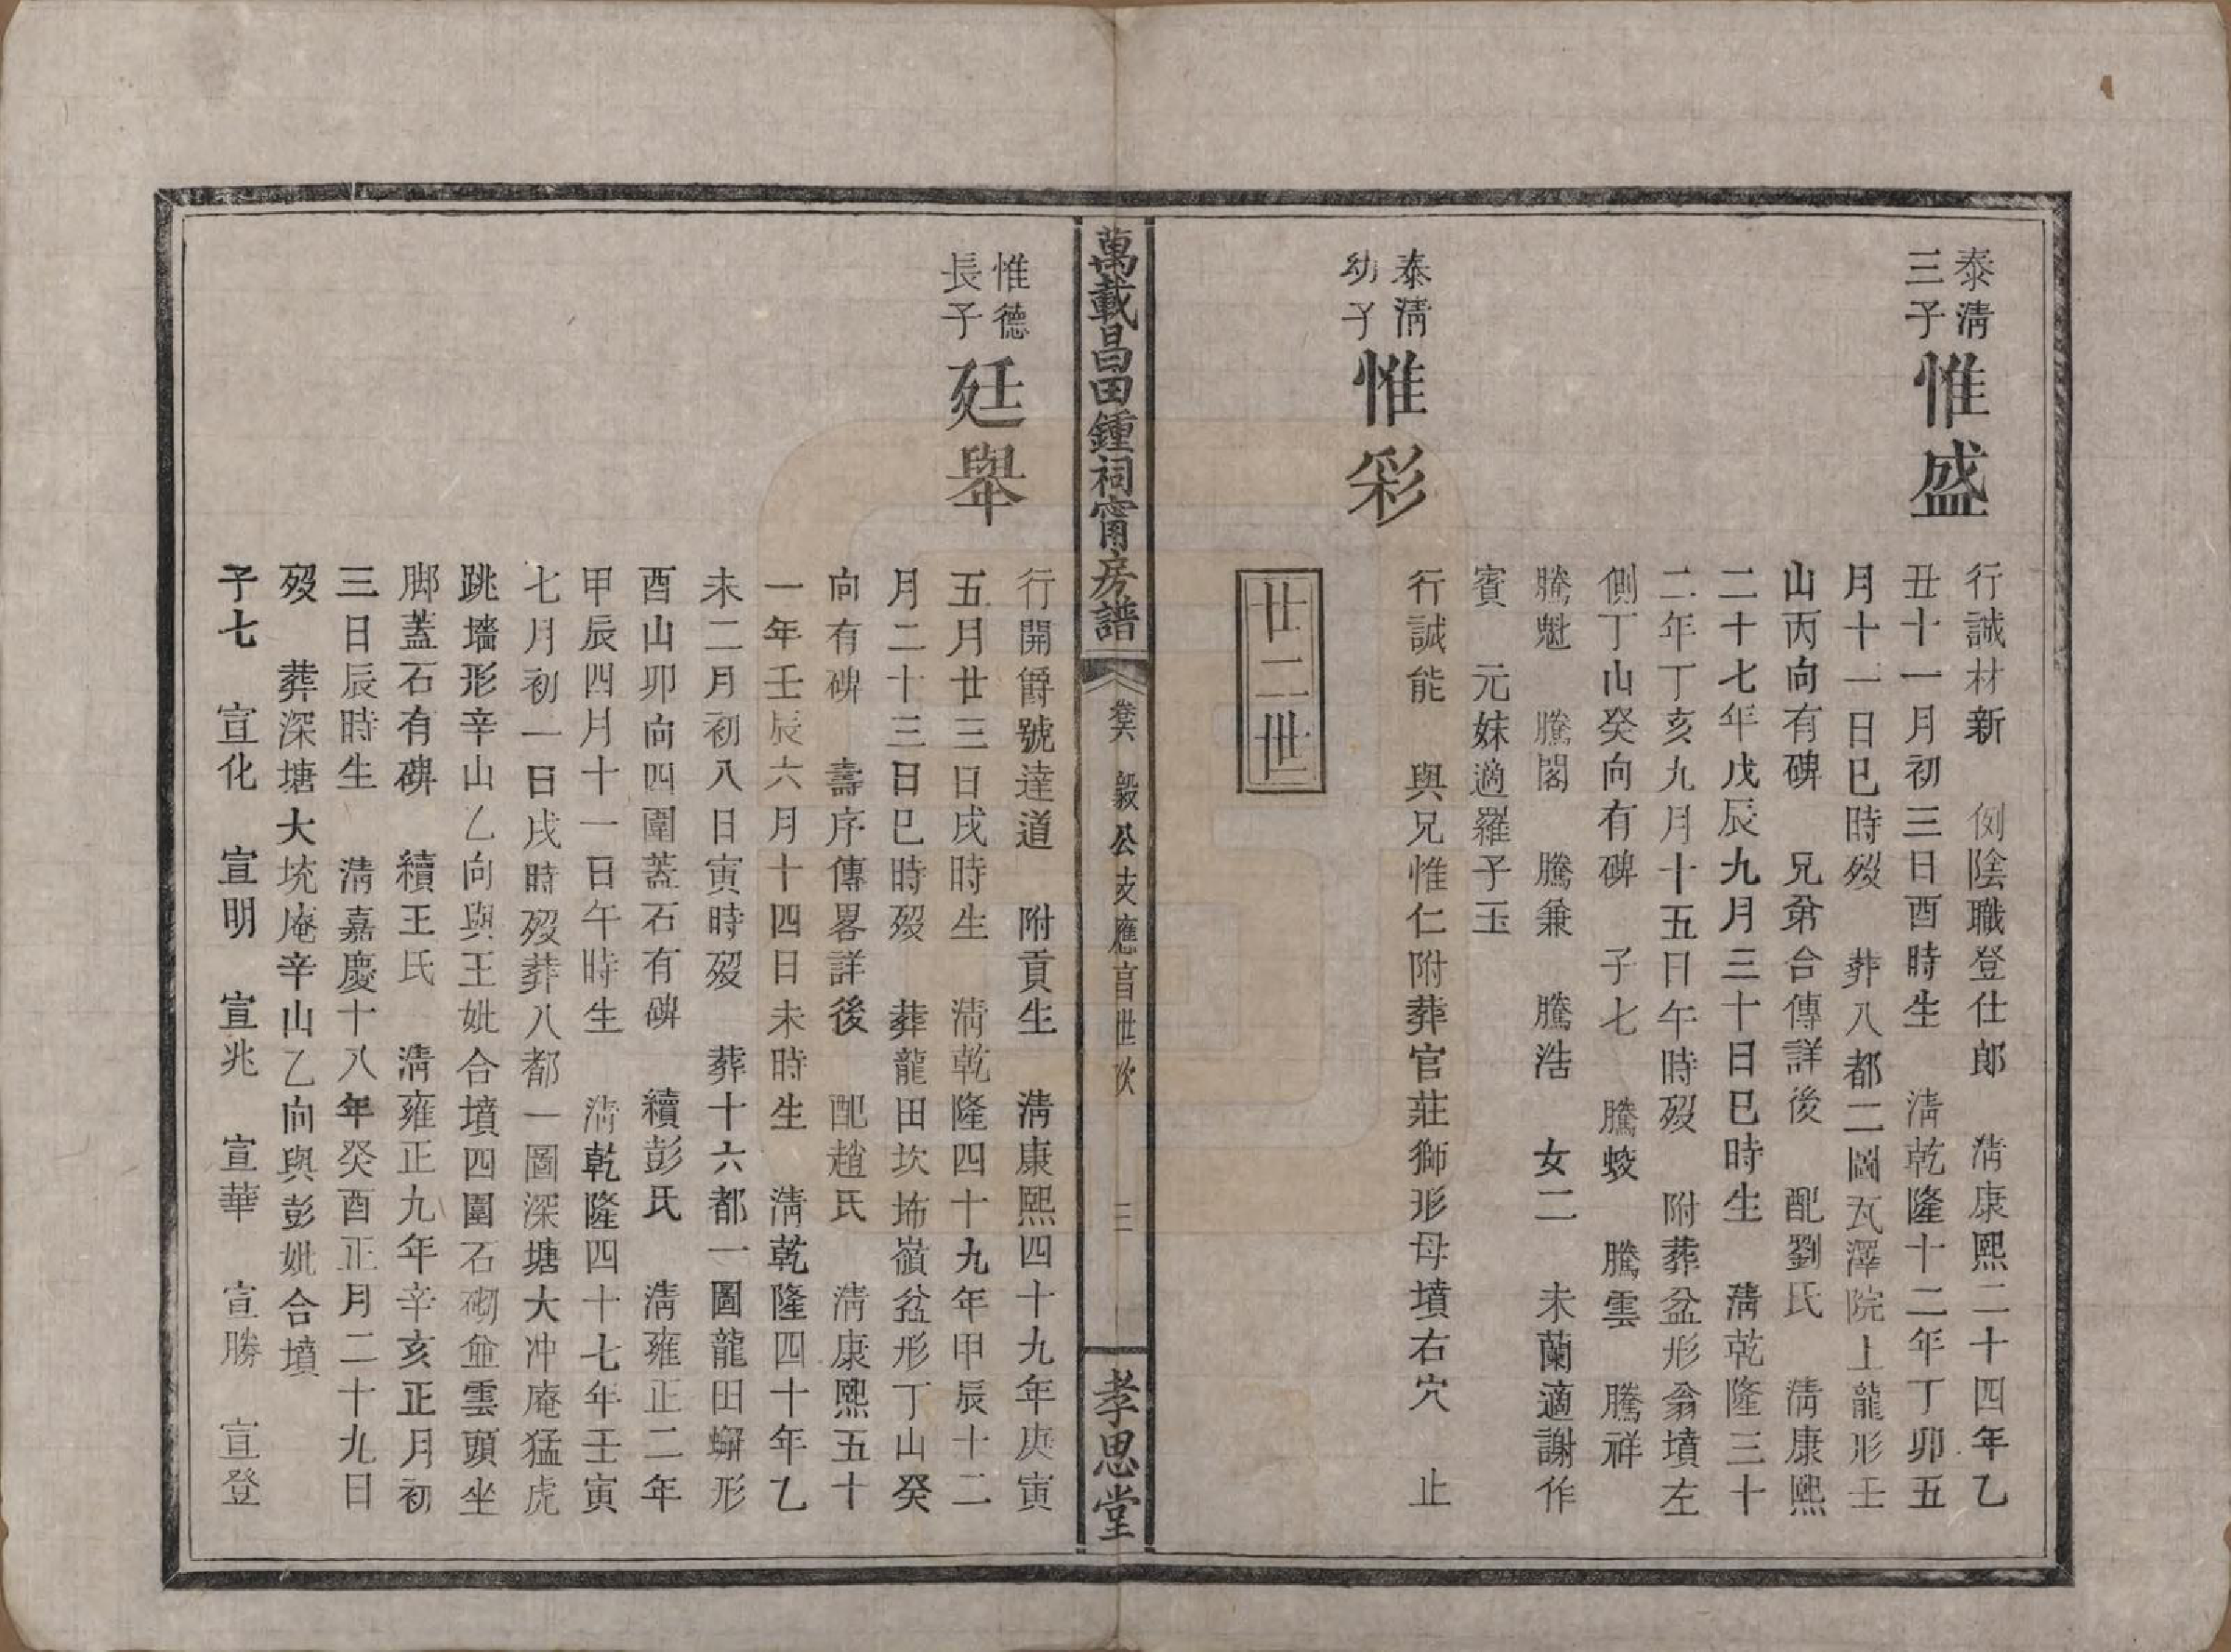 泰淸
三子
惟盛
行誠材新　例陰職登仕郎　淸康熙二十四年乙
丑十一月初三日酉時生　淸乾隆十二年丁卯五
月十一日巳時歿　葬八都二圖瓦澤院上龍形壬
山丙向有碑　兄弟合傳詳後　配劉氏　淸康熙
二十七年戊辰九月三十日巳時生　淸乾隆三十
二年丁亥九月十五日午時歿　附葬盆形翁墳左
側丁山癸向有碑　子七　騰蛟　騰雲　騰祥
騰魁　騰閣　騰兼　騰浩　女二　未蘭適謝作
賓　元妹適羅子玉
泰淸
幼子
惟彩
行誠能　與兄惟仁附葬官莊獅形母墳右穴　止
廿二世
萬載昌田鍾祠甯房譜
卷六　毅公支應昌世次
三
孝思堂
惟德
長子
廷舉
行開爵號達道　附貢生　淸康熙四十九年庚寅
五月廿三日戌時生　淸乾隆四十九年甲辰十二
月二十三日巳時歿　葬龍田坎㘵嶺盆形丁山癸
向有碑　壽序傳畧詳後　配趙氏　淸康熙五十
一年壬辰六月十四日未時生　淸乾隆四十年乙
未二月初八日寅時歿　葬十六都一圖龍田蠏形
酉山卯向四圍蓋石有碑　續彭氏　淸雍正二年
甲辰四月十一日午時生　淸乾隆四十七年壬寅
七月初一日戌時歿葬八都一圖深塘大冲庵猛虎
跳墻形辛山乙向與王妣合墳四圍石砌盆雲頭坐
脚蓋石有碑　續王氏　淸雍正九年辛亥正月初
三日辰時生　淸嘉慶十八年癸酉正月二十九日
歿　葬深塘大坑庵辛山乙向與彭妣合墳
子七　宣化　宣明　宣兆　宣華　宣勝　宣登